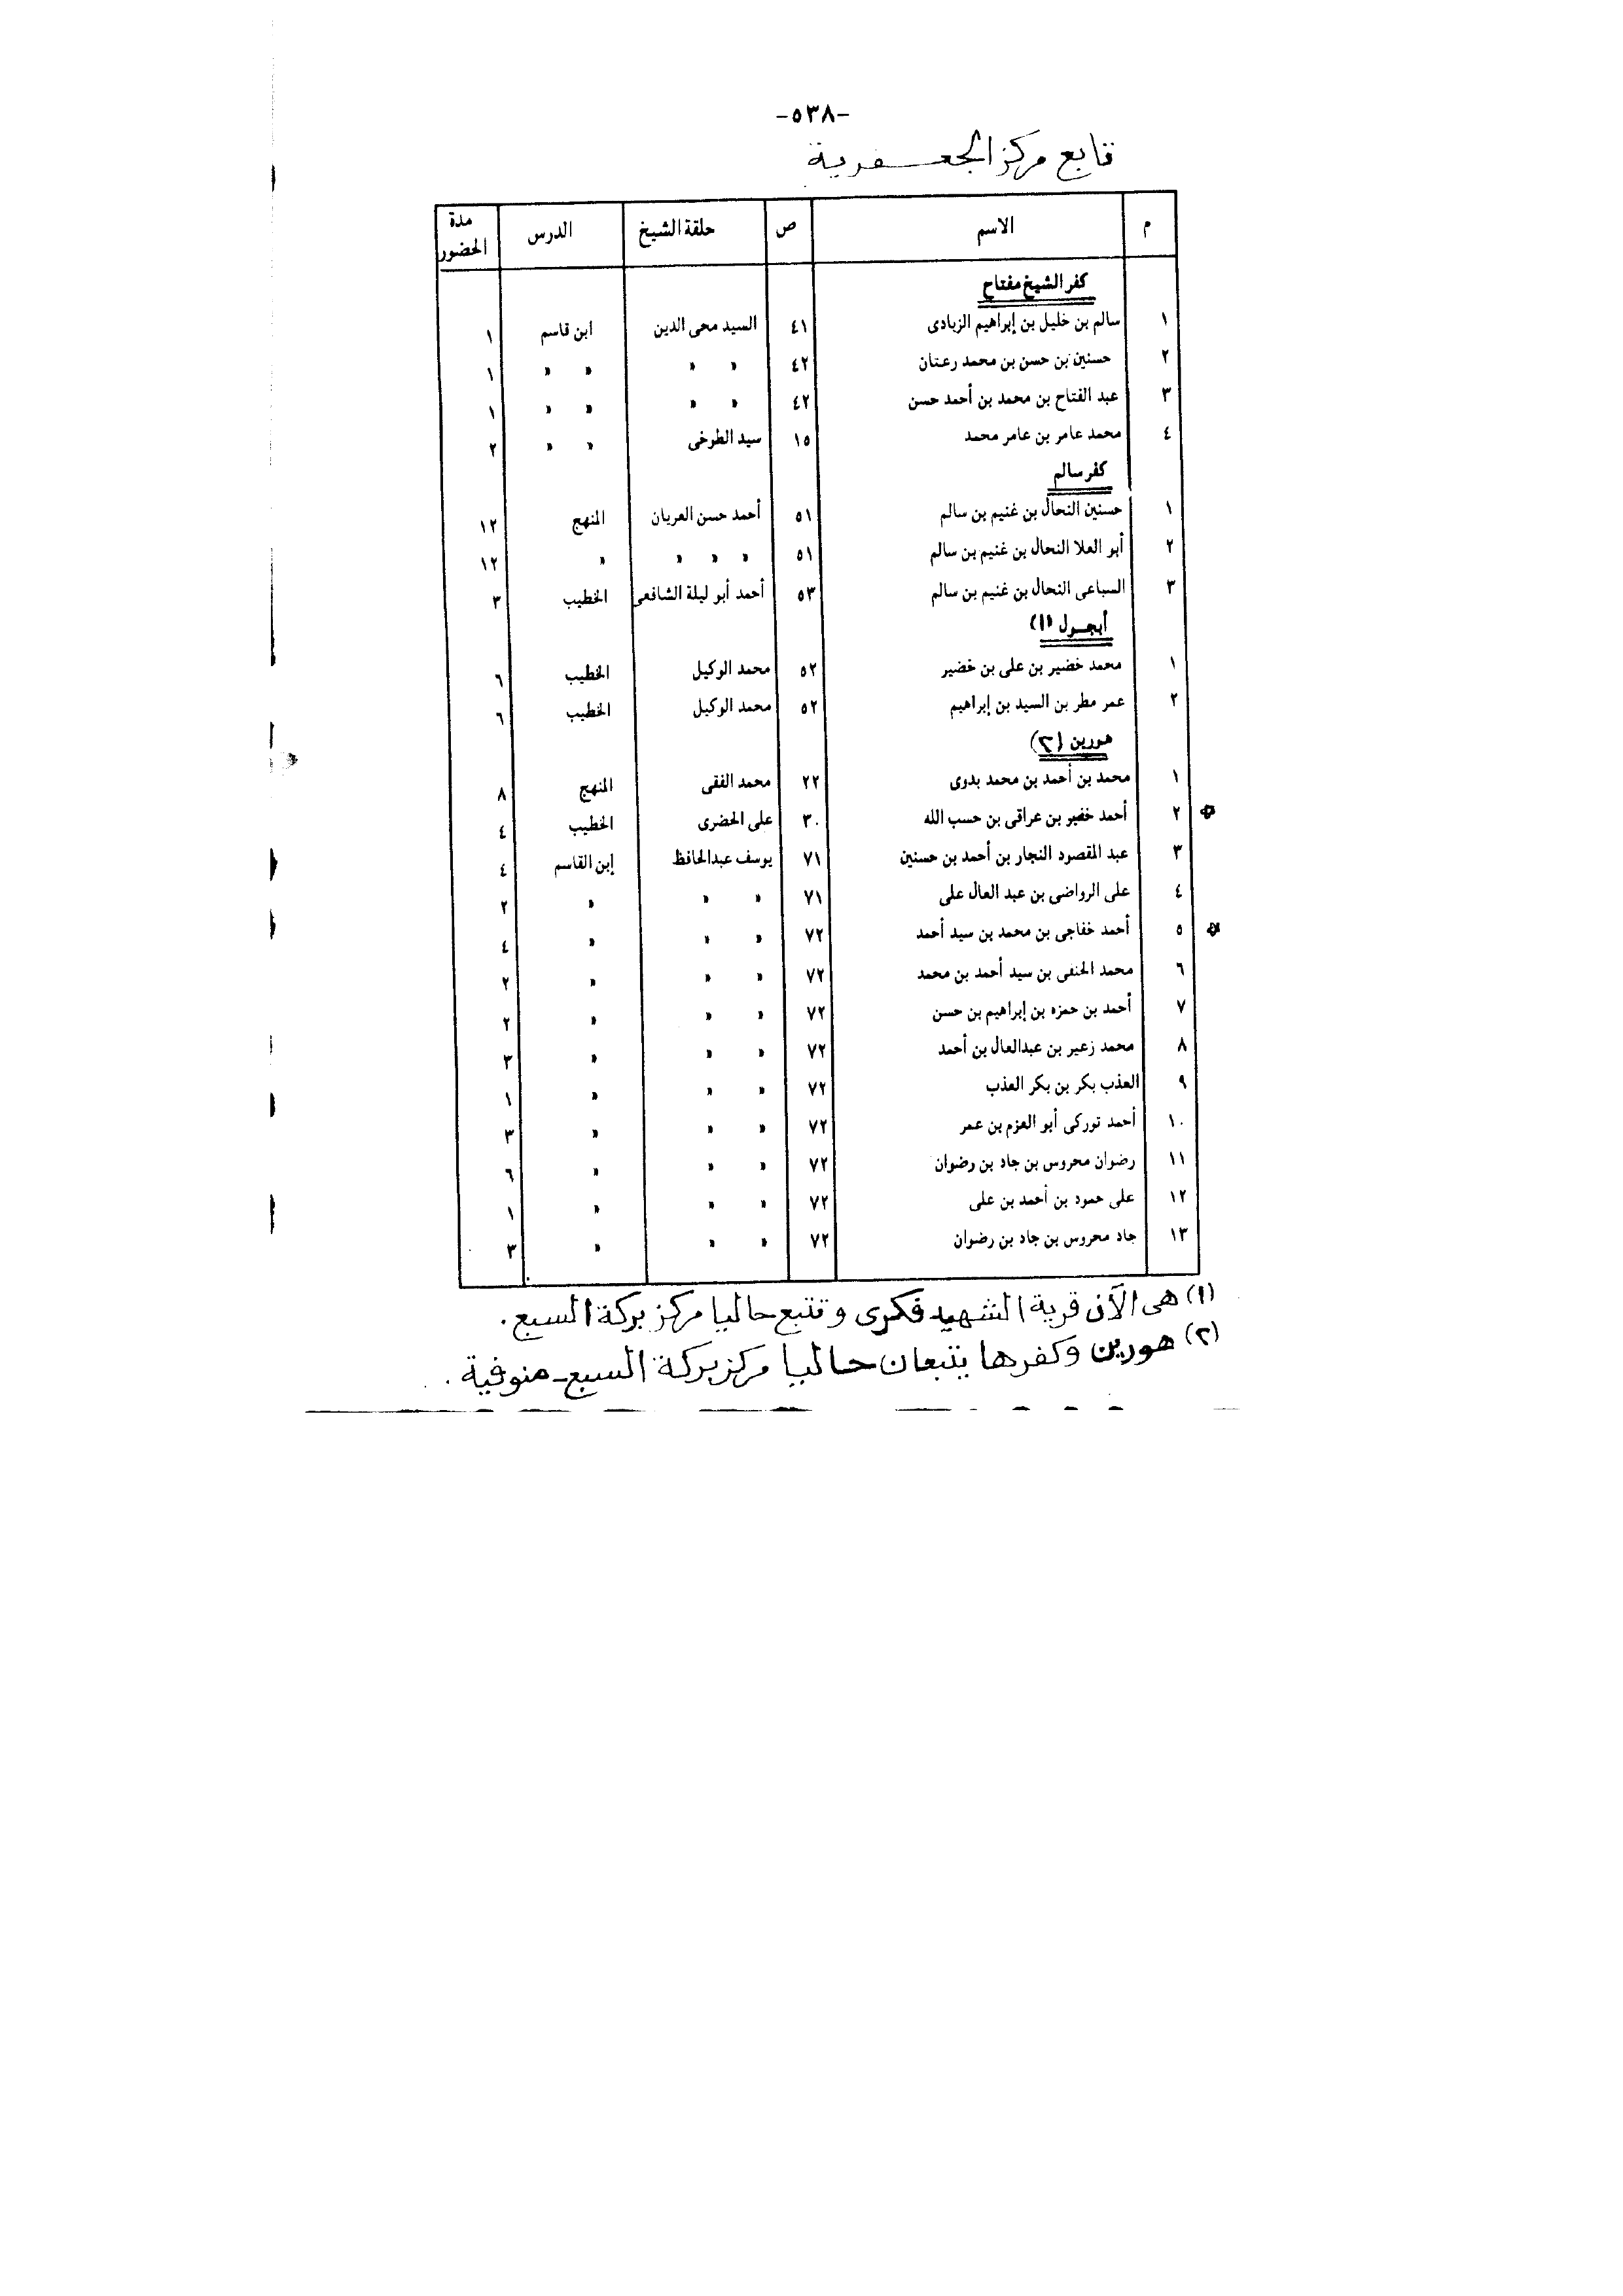 -٥٣٨-
تابع مركز الجعفرية
م الاسم ص حلقة الشيخ الدرس مدة الحضور
كفر الشيخ مفتاح
١ سالم بن خليل بن إبراهيم الزيادى ٤١ السيد محى الدين ابن قاسم ١
٢ حسنين بن حسن بن محمد رعتان ٤٢ " " " " ١
٣ عبد الفتاح بن محمد بن أحمد حسن ٤٢ " " " " ١
٤ محمد عامر بن عامر محمد ١٥ سيد الطوخى " " ٢
كفر سالم
١ حسنين النحال بن غنيم بن سالم ٥١ أحمد حسن العريان المنهج ١٢
٢ أبو العلا النحال بن غنيم بن سالم ٥١ " " " " ١٢
٣ السباعى النحال بن غنيم بن سالم ٥٣ أحمد أبو ليلة الشافعى الخطيب ٣
أبجول (١)
١ محمد خضير بن على بن خضير ٥٢ محمد الوكيل الخطيب ٦
٢ عمر مطر بن السيد بن إبراهيم ٥٢ محمد الوكيل الخطيب ٦
هورين (٢)
١ محمد بن أحمد بن محمد بدوى ٢٢ محمد الفقى المنهج ٨
٢ أحمد خضير بن عراقى بن حسب الله ٣٠ على الخضرى الخطيب ٤
٣ عبد المقصود النجار بن أحمد بن حسنين ٧١ يوسف عبدالحافظ إبن القاسم ٤
٤ على الرواضى بن عبد العال على ٧١ " " " ٢
٥ أحمد خفاجى بن محمد بن سيد أحمد ٧٢ " " " ٤
٦ محمد الحنفى بن سيد أحمد بن محمد ٧٢ " " " ٢
٧ أحمد بن حمزه بن إبراهيم بن حسن ٧٢ " " " ٢
٨ محمد زعير بن عبدالعال بن أحمد ٧٢ " " " ٣
٩ العذب بكر بن بكر العذب ٧٢ " " " ١
١٠ أحمد توركى أبو العزم بن عمر ٧٢ " " " ٣
١١ رضوان محروس بن جاد بن رضوان ٧٢ " " " ٦
١٢ على حمود بن أحمد بن على ٧٢ " " " ١
١٣ جاد محروس بن جاد بن رضوان ٧٢ " " " ٣
(١) هى الآن قرية الشهيد فكرى وتتبع حاليا مركز بركة السبع .
(٢) هورين وكفرها يتبعان حاليا مركز بركة السبع - منوفية .